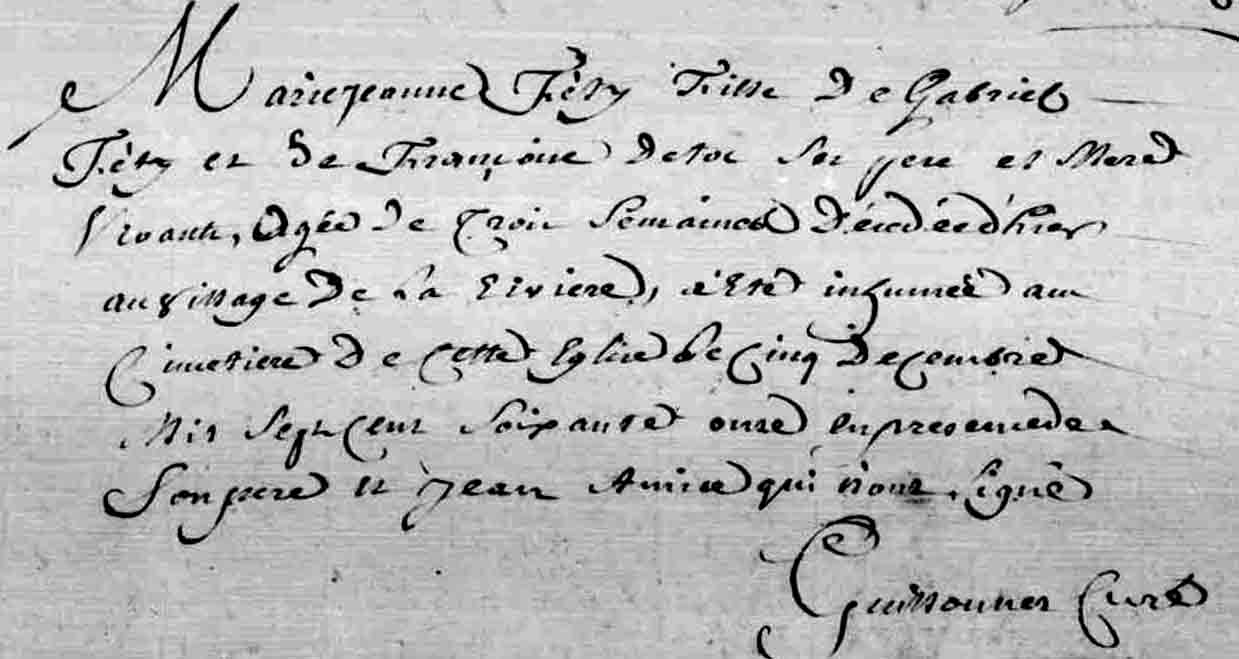 Marie jeanne Féty Fille De Gabriel
Féty et De Françoise Ses pere et Mere
Vivants, agée De Trois Semaines Décédée d'hier
au village De La Riviere, a Eté inhumée au
Cimetiere De Cette Eglise Le Cinq Decembre
Mil Sept Cent Soixante onze en presence de
Son pere et jean qui n'ont Signé
Curé